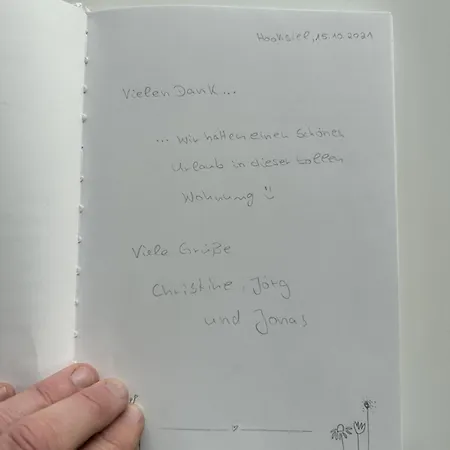 Hooksiel, 15.10.2021
Vielen Dank...
... wir hatten einen schönen
Urlaub in dieser tollen
Wohnung
Viele Grüße
Christine, Jörg
und Jonas